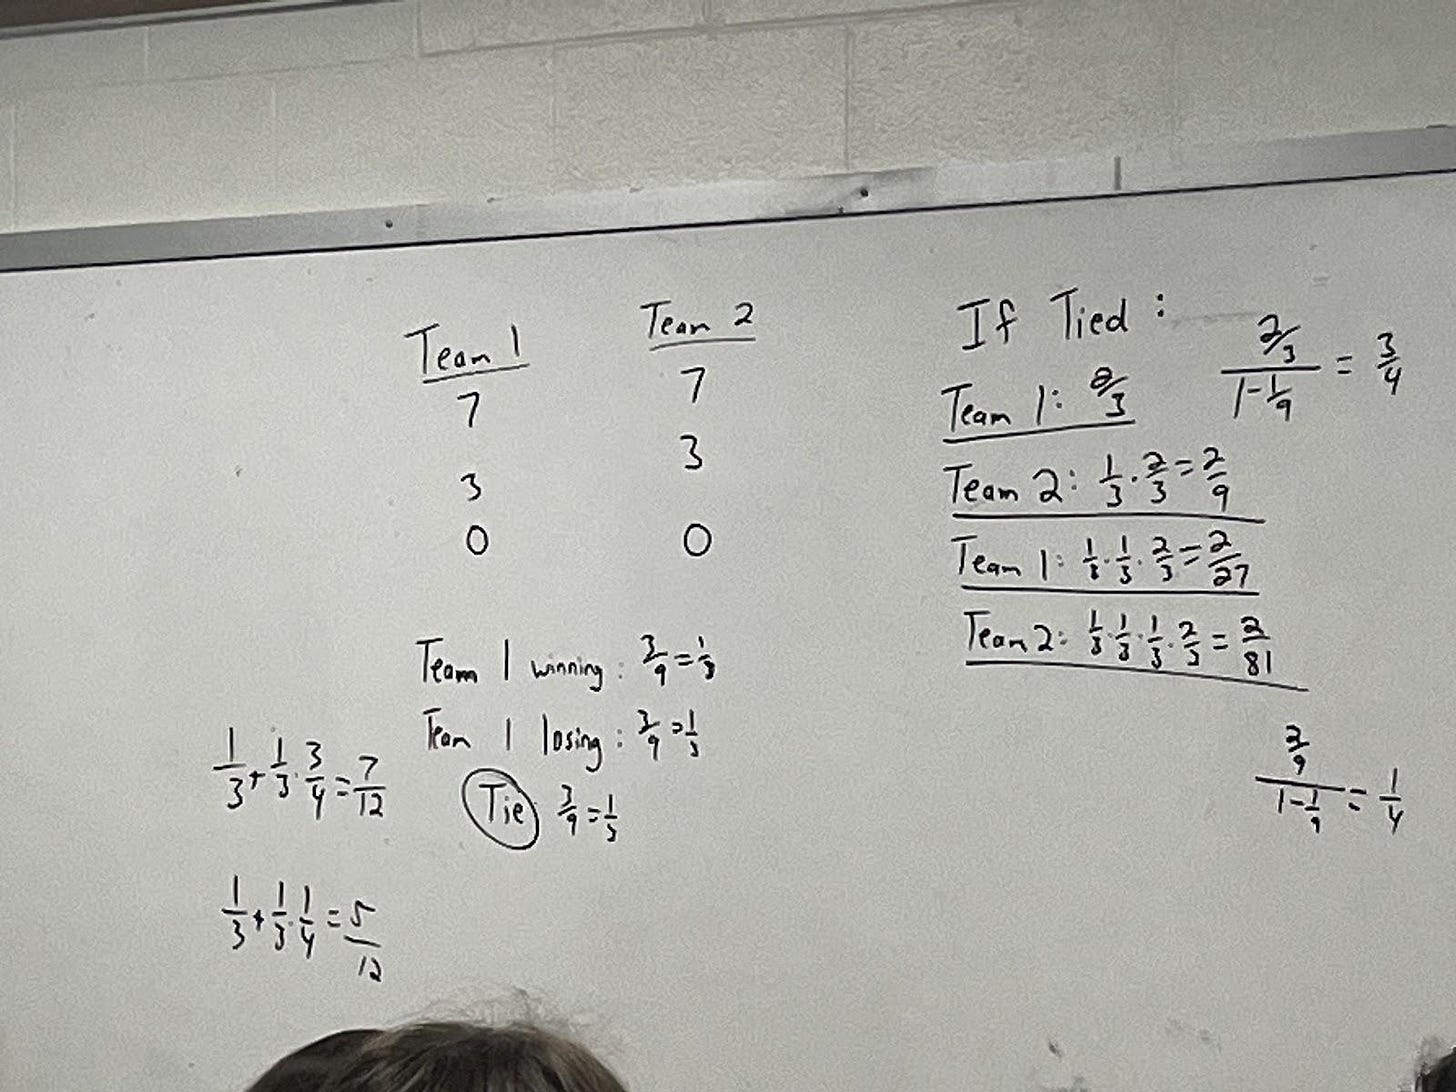 Team 1
7
3
0
Team 2
7
3
0
Team 1 winning: 3/9 = 1/3
Team 1 losing: 3/9 = 1/3
Tie 3/9 = 1/3
1/3 + 1/3 · 3/4 = 7/12
1/3 + 1/3 · 1/4 = 5/12
If Tied:
Team 1: 2/3
Team 2: 1/3 · 2/3 = 2/9
Team 1: 1/3 · 1/3 · 2/3 = 2/27
Team 2: 1/3 · 1/3 · 1/3 · 2/3 = 2/81
2/3 / 1 - 1/9 = 3/4
2/9 / 1 - 1/9 = 1/4